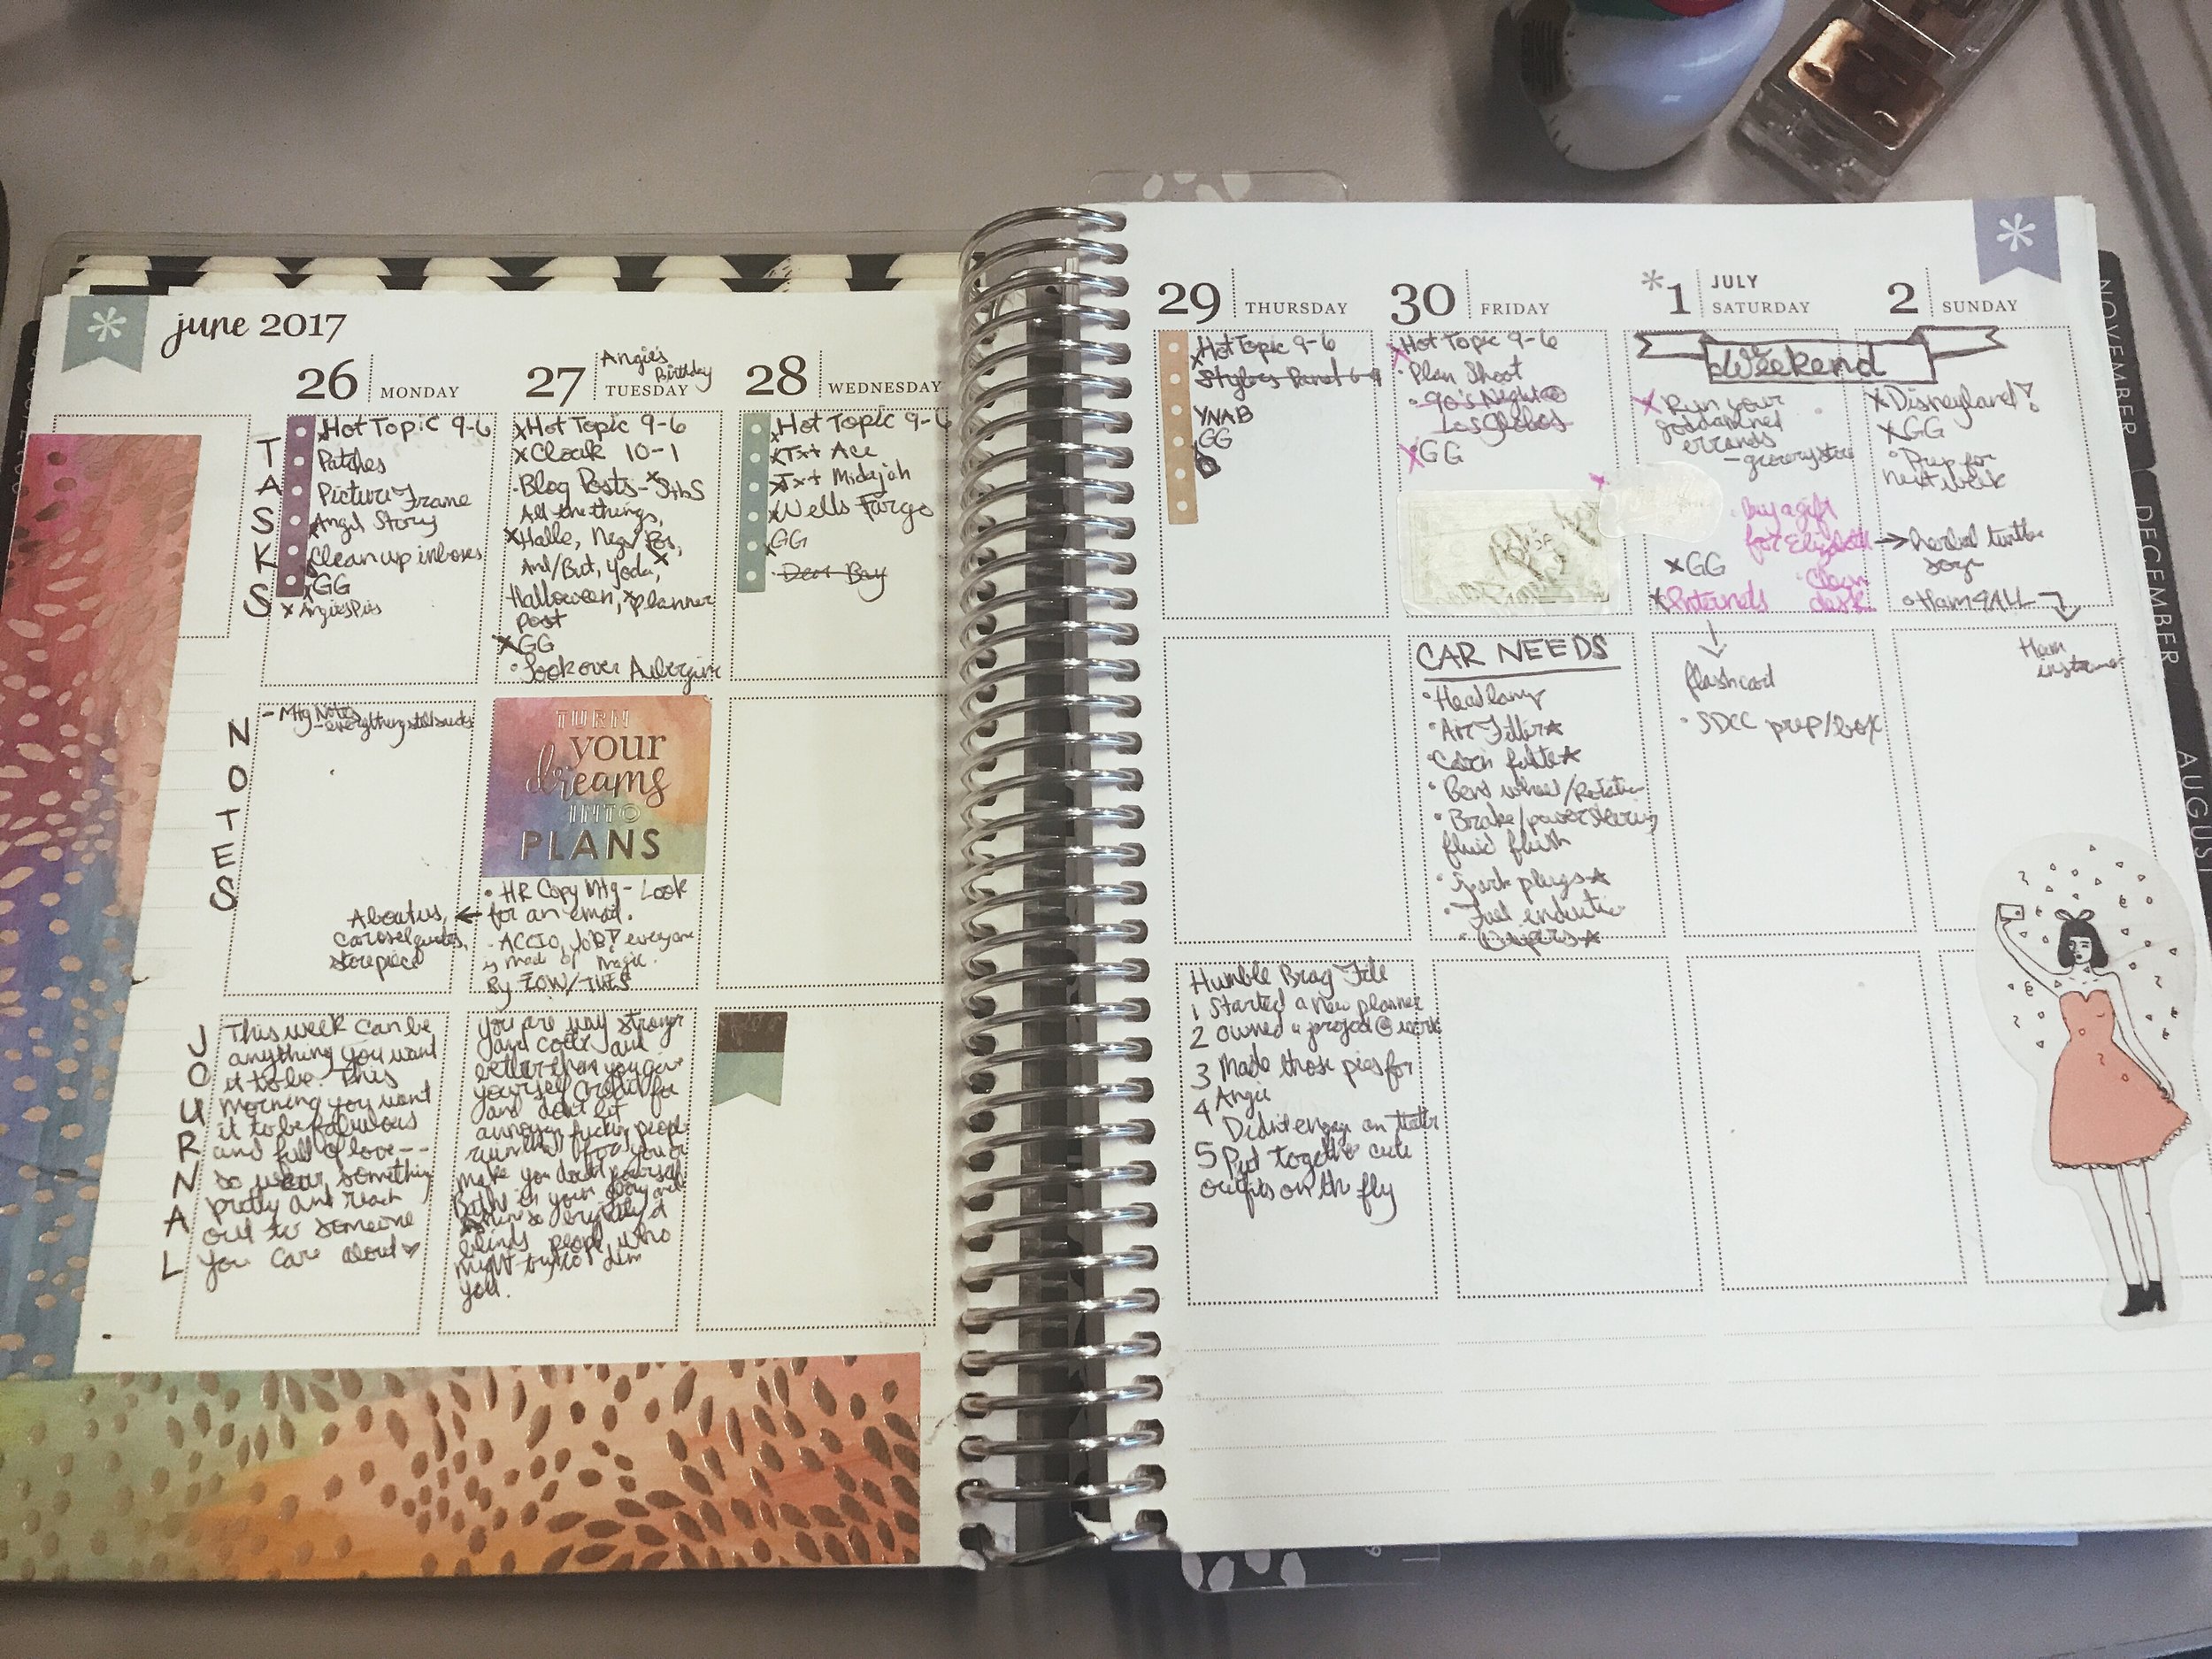 june 2017
26 MONDAY
TASKS
Hot Topic 9-6
Patches
Picture Frame
Angel Story
Clean up inboxes
GG
x Angie's Pies
27 TUESDAY
Angie's
Birthday
x Hot Topic 9-6
x Cloak 10-1
· Blog Posts-
All the things,
And/But, Yoda,
Halloween, Planner
post
x GG
· Look over
28 WEDNESDAY
Hot Topic 9-6
Txt Ace
Txt Midajah
Wells Fargo
GG
NOTES
- Mtg Notes
- everything still sucks
About us,
carosel quotes,
store piece
TURN
your
dreams
INTO
PLANS
· HR Copy Mtg - Look
for an email.
- ACCIO, JOB! everyone
is made of magic.
By EOW/TUES
JOURNAL
This week can be
anything you want
it to be. This
morning you want
it to be fabulous
and full of love --
so wear something
pretty and reach
out to someone
you care about ♥
You are way stronger
and cooler and
better than you give
yourself credit for
and don't let
annoying fucking people
make you doubt yourself
Bathe in your glow and
shine so brightly it
blinds people who
might try to dim
you.
29 THURSDAY
Hot Topic 9-6
YNAB
GG
30 FRIDAY
Hot Topic 9-6
· Plan Shoot
· 90's Night @
Los Globos
x GG
*1 JULY
SATURDAY
Weekend
x Run your
goddamned
errands
- grocery store
buy a gift
for Elizabeth
x GG
clean
desk
2 SUNDAY
x Disneyland!
x GG
· Prep for
next week
→ herbal
soap
Ham
CAR NEEDS
· Headlamp
· Air Filter ★
· Cabin filter ★
· Bent wheel/Rotation
· Brake/power steering
fluid flush
· Spark plugs ★
· Fuel
· Wipers ★
flashcard
· SDCC prep/box
Humble Brag File
1 Started a new planner
2 owned a project @ work
3 Made those pies for
Angie
4 Didn't engage on
5 Put together cute
outfits on the fly
NOVEMBER
DECEMBER
AUGUST